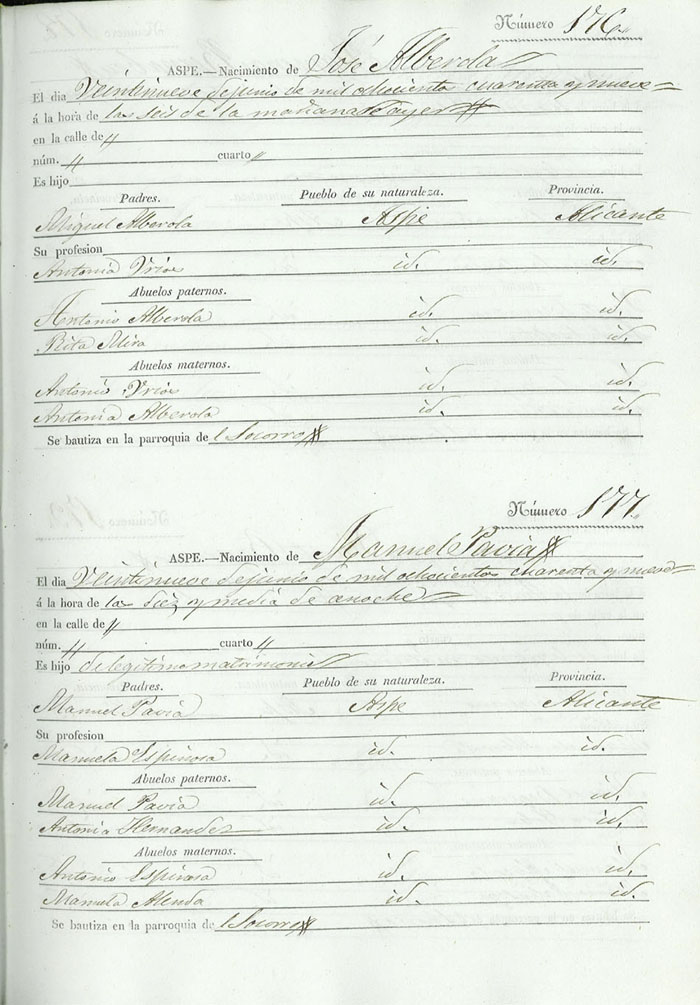 Número 176
ASPE.—Nacimiento de José Alberola
El dia Veintinueve de junio de mil ochocientos cuarenta y nueve
á la hora de las seis de la mañana de ayer
en la calle de "
núm. " cuarto "
Es hijo
Padres. Pueblo de su naturaleza. Provincia.
Miguel Alberola Aspe Alicante
Su profesion
Antonia Vrios id. id.
Abuelos paternos.
Antonio Alberola id. id.
Rita Mira id. id.
Abuelos maternos.
Antonio Vrios id. id.
Antonia Alberola id. id.
Se bautiza en la parroquia del Socorro
Número 177.
ASPE.—Nacimiento de Manuel Pavia
El dia Veintinueve de junio de mil ochocientos cuarenta y nueve
á la hora de las diez y media de anoche
en la calle de "
núm. " cuarto "
Es hijo de legitimo matrimonio
Padres. Pueblo de su naturaleza. Provincia.
Manuel Pavia Aspe Alicante
Su profesion
Manuela Espinosa id. id.
Abuelos paternos.
Manuel Pavia id. id.
Antonia Hernandez id. id.
Abuelos maternos.
Antonio Espinosa id. id.
Manuela Alenda id. id.
Se bautiza en la parroquia del Socorro